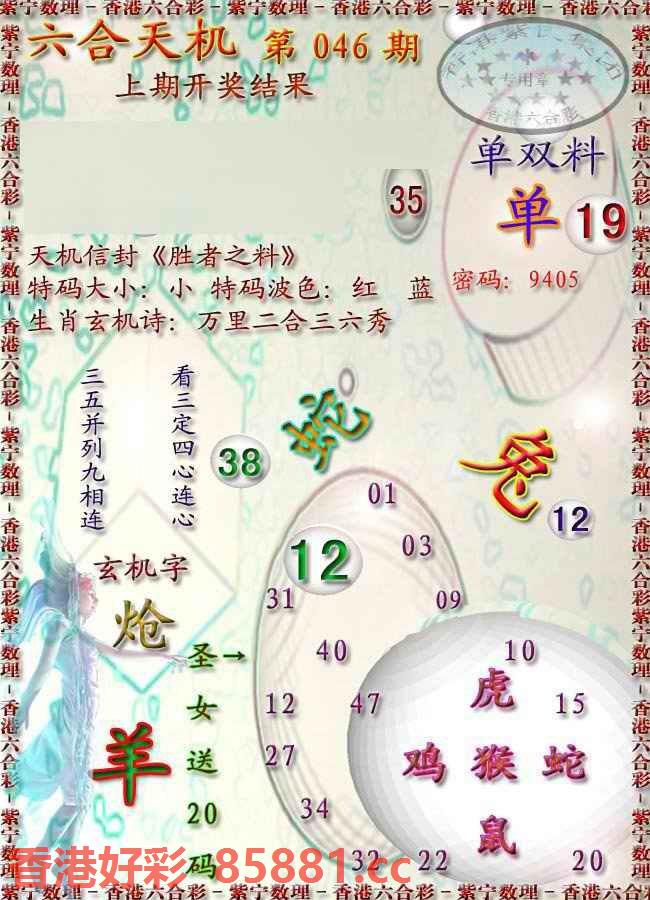 紫宁数理－香港六合彩－紫宁数理－香港六合彩－紫宁数理－香港六合彩－紫宁数理－香港六合彩
六合天机 第 046 期
上期开奖结果
专用章
香港六合彩
单双料
单 19
35
天机信封《胜者之料》
特码大小：小 特码波色：红 蓝
密码：9405
生肖玄机诗：万里二合三六秀
看三定四心连心
三五并列九相连
38
蛇
兔
12
01
12
03
玄机字
炝
31
09
圣→
女
送
20
码
40
10
虎
12
47
15
羊
27
鸡 猴 蛇
34
鼠
32
22
20
香港好彩 85881.cc
紫宁数理－香港六合彩－紫宁数理－香港六合彩－紫宁数理－香港六合彩